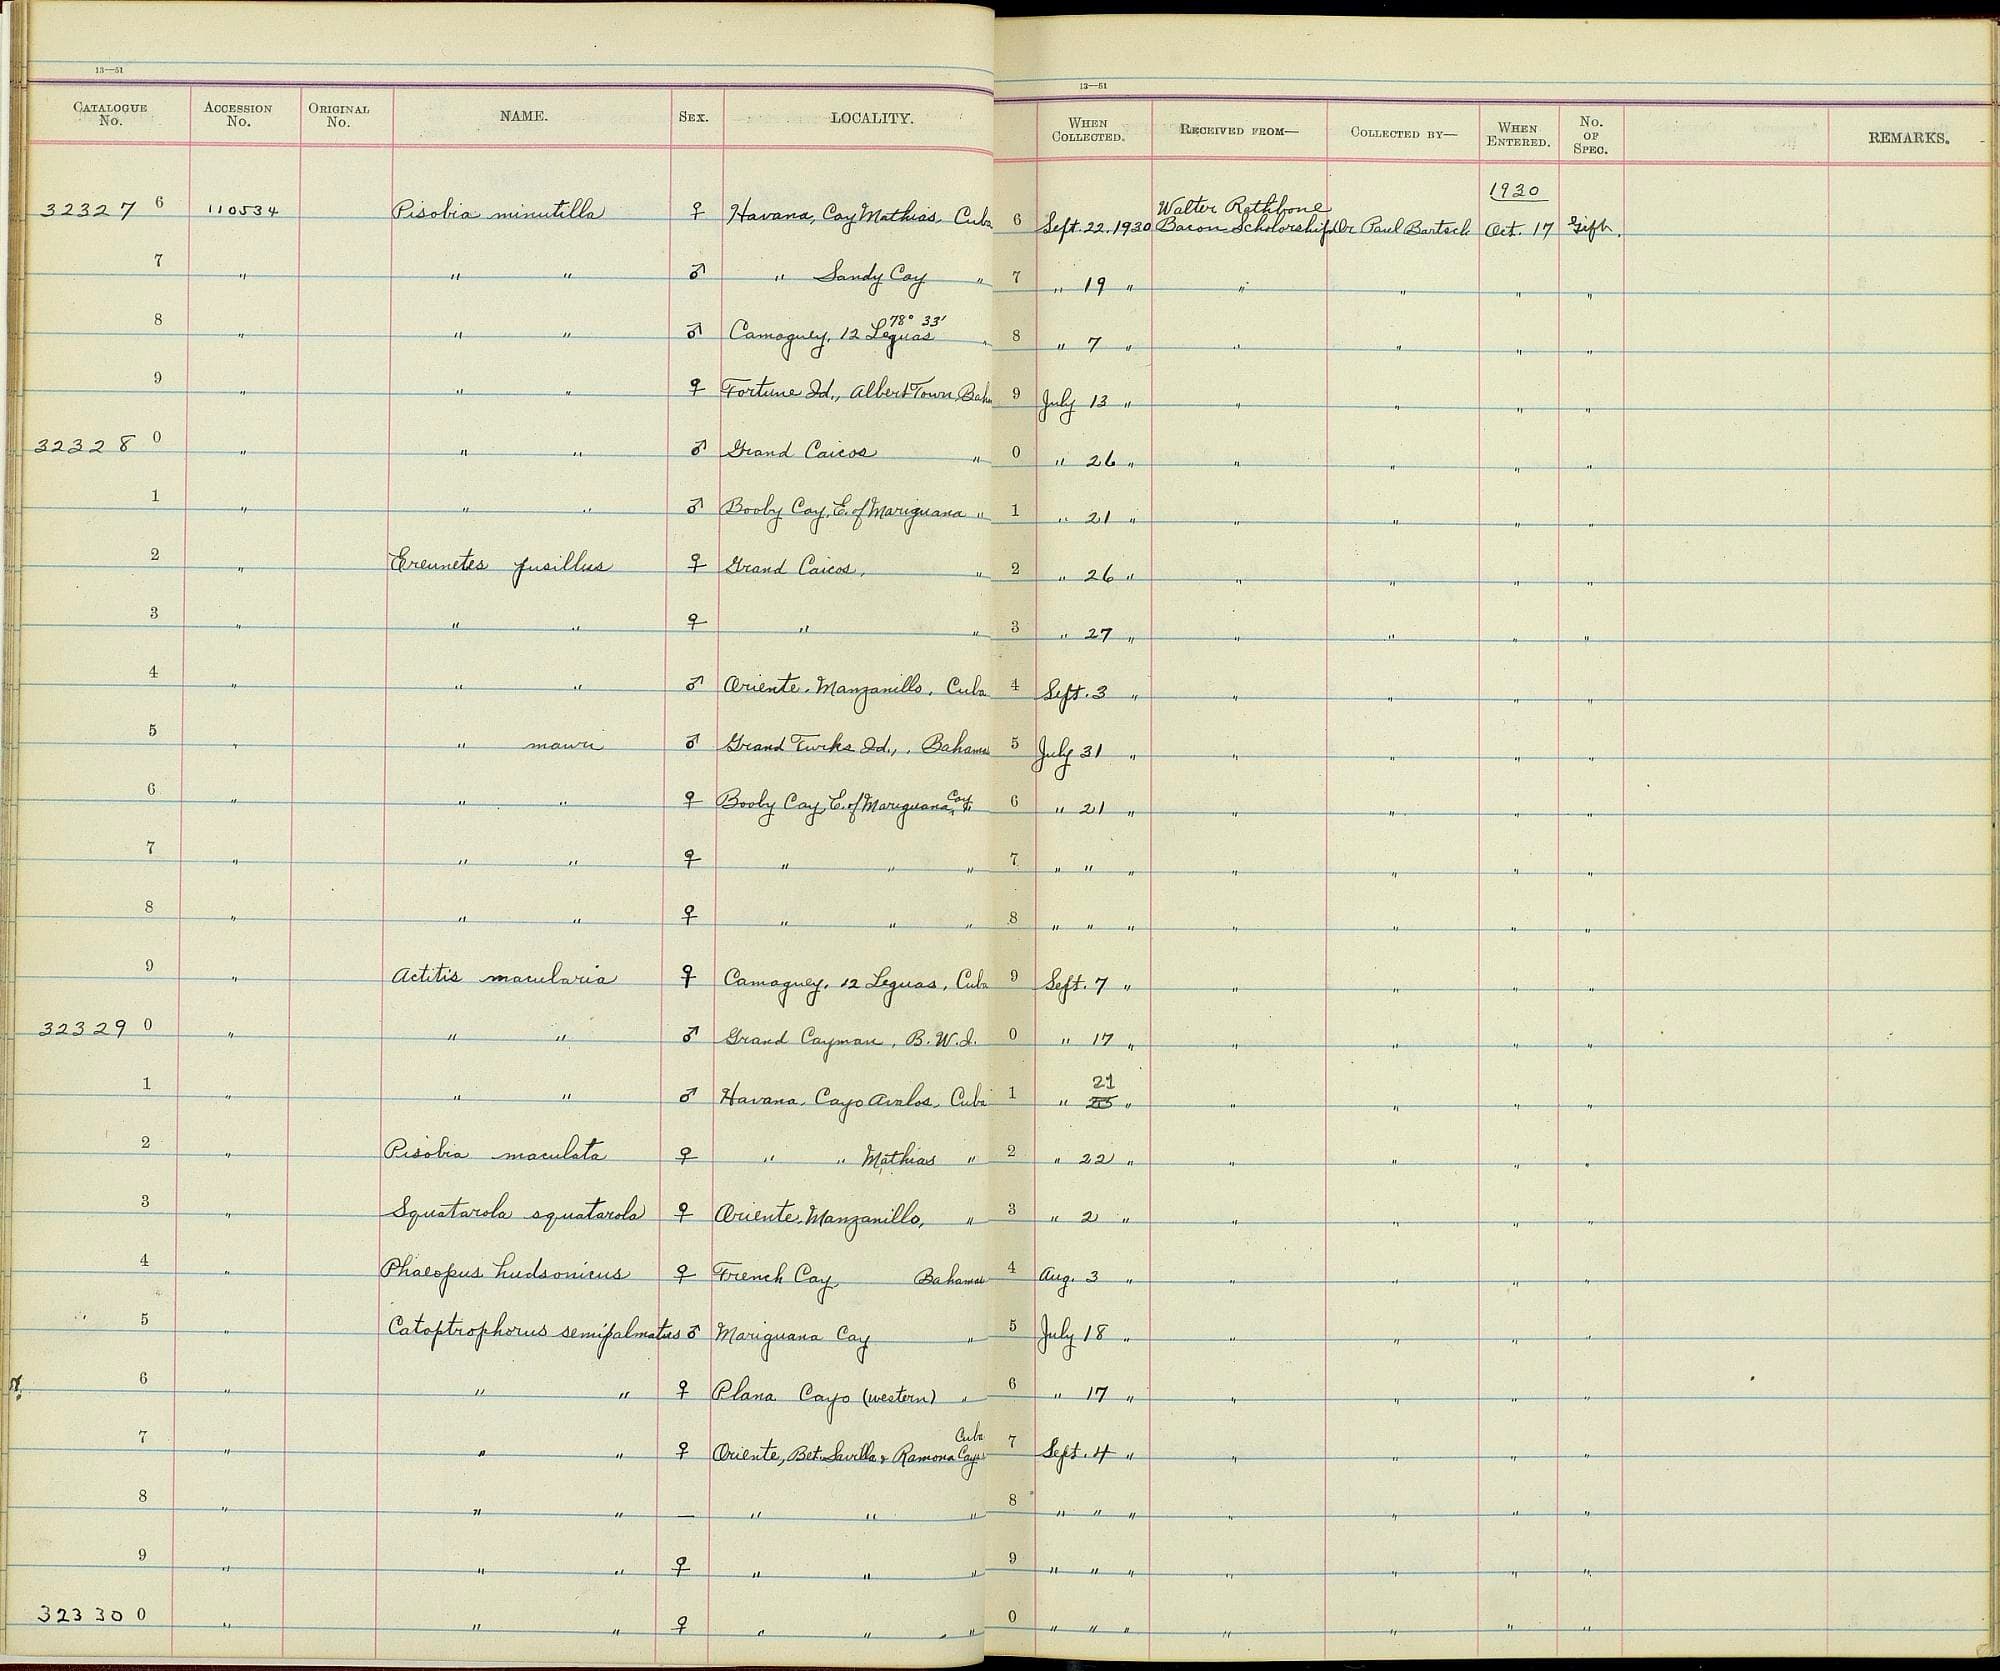 13—51
CATALOGUE No. ACCESSION No. ORIGINAL No. NAME. SEX. LOCALITY.
13—51
WHEN COLLECTED. RECEIVED FROM— COLLECTED BY— WHEN ENTERED. No. OF SPEC. REMARKS.
1930
32327 6 110534 Pisobia minutilla ♀ Havana, Cay Mathias, Cuba 6 Sept. 22. 1930 Walter Rathbone Bacon Scholorship Dr Paul Bartsch Oct. 17 Gift.
7 " " " ♂ " Sandy Cay " 7 " 19 " " " " "
8 " " " ♂ Camaguey, 12 Leguas 78° 33' " 8 " 7 " " " " "
9 " " " ♀ Fortune Id., Albert Town, Baha 9 July 13 " " " " "
32328 0 " " " ♂ Grand Caicos " 0 " 26 " " " " "
1 " " " ♂ Booby Cay, E. of Mariguana " 1 " 21 " " " " "
2 " Ereunetes pusillus ♀ Grand Caicos, " 2 " 26 " " " " "
3 " " " ♀ " " 3 " 27 " " " " "
4 " " " ♂ Oriente, Manzanillo, Cuba 4 Sept. 3 " " " " "
5 " " mauri ♂ Grand Turks Id., . Bahamas 5 July 31 " " " " "
6 " " " ♀ Booby Cay, E. of Mariguana Cay, " 6 " 21 " " " " "
7 " " " ♀ " " " 7 " " " " " " "
8 " " " ♀ " " " 8 " " " " " " "
9 " Actitis macularia ♀ Camaguey, 12 Leguas, Cuba 9 Sept. 7 " " " " "
32329 0 " " " ♂ Grand Cayman, B.W.I. 0 " 17 " " " " "
1 " " " ♂ Havana, Cayo Avalos, Cuba 1 " 21 25 " " " " "
2 " Pisobia maculata ♀ " " Mathias " 2 " 22 " " " " "
3 " Squatarola squatarola ♀ Oriente, Manzanillo, " 3 " 2 " " " " "
4 " Phaeopus hudsonicus ♀ French Cay, Bahamas 4 Aug. 3 " " " " "
5 " Catoptrophorus semipalmatus ♂ Mariguana Cay " 5 July 18 " " " " "
6 " " " ♀ Plana Cayo (western) " 6 " 17 " " " " "
7 " " " ♀ Oriente, Bet. Savilla & Ramona Cays Cuba 7 Sept. 4 " " " " "
8 " " " — " " " 8 " " " " " " "
9 " " " ♀ " " " 9 " " " " " " "
32330 0 " " " ♀ " " " " 0 " " " " " " "